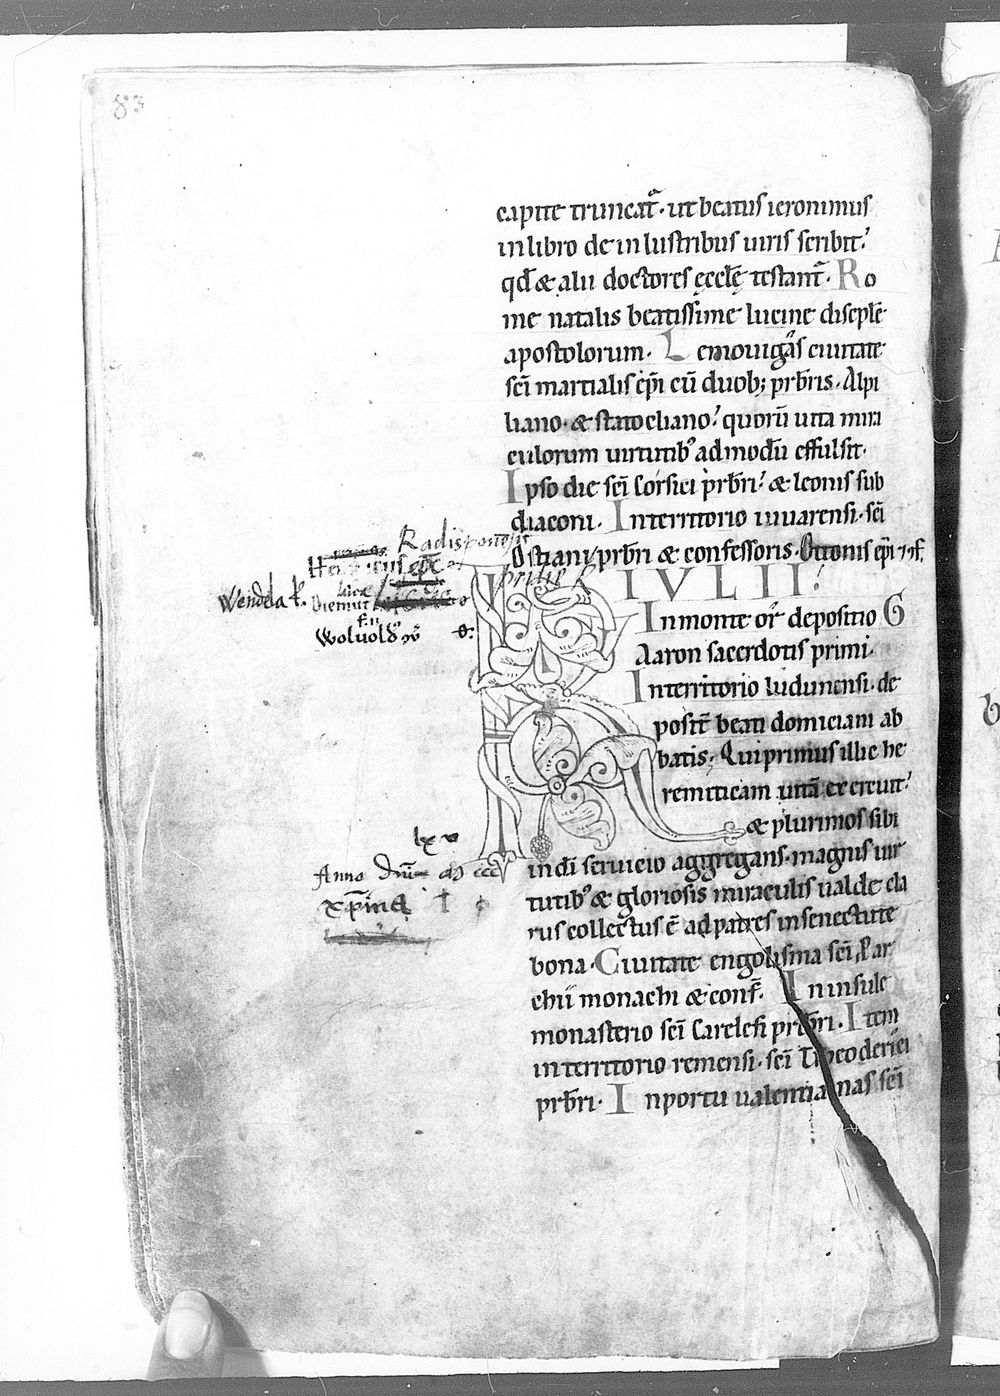 83
capite truncat᷑. ut beatus ieronimus
in libro de inlustribus uiris scribit.
qd̄ & alii doctores ęcclę̄ testant᷑. Ro
me natalis beatissime lucine discip̄le
apostolorum. Lemouigas ciuitate
sc̄i martialis ep̄i cū duob; prb̄ris. Alpi
liano. & statocliano. quorū uita mira
culorum uirtutib' admodū effulsit.
Ipso die sc̄i Corsici prb̄ri. & leonis sub
diaconi. In territorio uiuarensi. sc̄i
Radisponēsis
Ostiani prb̄ri & confessoris. Ottonis ep̄i
IVLII
Wendela
Diemut
Wolvold'
In monte or̄ depositio G
Aaron sacerdotis primi.
In territorio ludunensi. de
posit̄ beati domiciani ab
batis. Qui primus illic he
remiticam uitā exercuit.
& plurimos sibi
lxv
Anno dn̄i ccc
in di seruicio aggregans. magnis uir
tutib' & gloriosis miraculis ualde cla
rus collectus ē ad patres in senectute
bona. Ciuitate engolisma sc̄i Par
chii monachi & conf̄. In insule
monasterio sc̄i Carelefi prb̄ri. Item
in territorio remensi. sc̄i Theoderici
prb̄ri. In portu ualentianas sc̄i